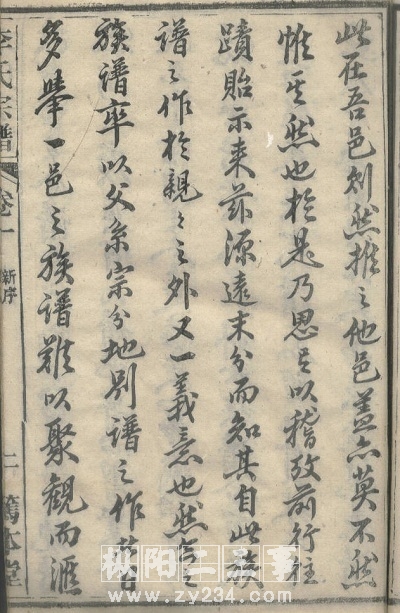 此在吾邑則然推之他邑蓋亦莫不然
惟其然也於是乃思有以稽攷前行往
蹟貽示来茲源遠末分而知其自此族
譜之作於親々之外又一義意也然古之
族譜率以父系宗分地別譜之作若
多舉一邑之族譜難以聚觀而滙
李氏宗譜 卷一 新序 二 篤本堂
枞阳二三事
www.zy234.com